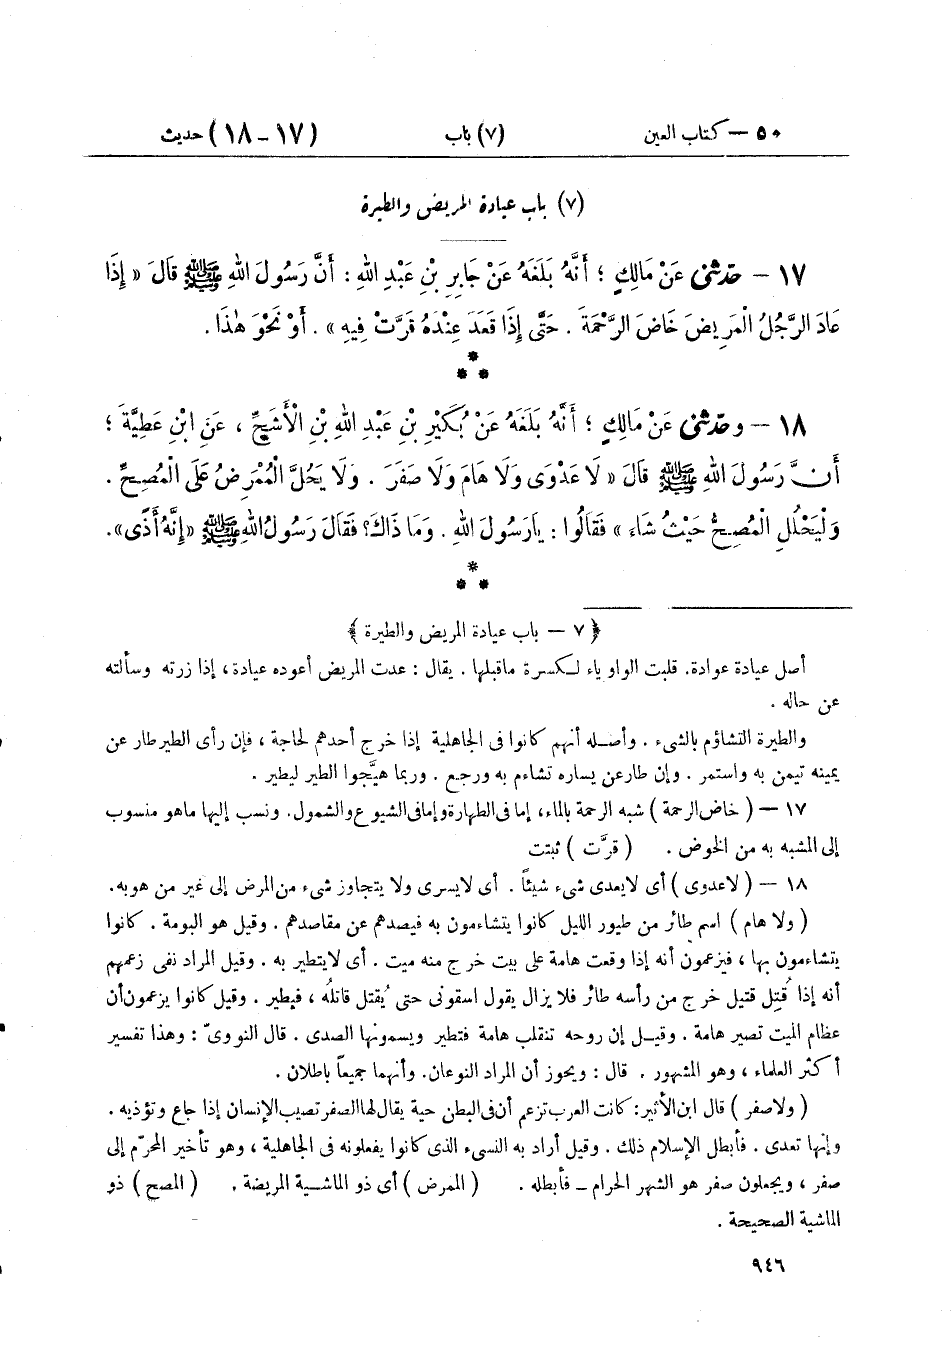 ٥٠ — كتاب العين (٧) باب (١٧ - ١٨) حديث
(٧) باب عيادة المريض والطيرة
١٧ — حَدَّثَنِى عَنْ مَالِكٍ ؛ أَنَّهُ بَلَغَهُ عَنْ جَابِرِ بْنِ عَبْدِ اللهِ : أَنَّ رَسُولَ اللهِ ﷺ قَالَ « إِذَا
عَادَ الرَّجُلُ الْمَرِيضَ خَاضَ الرَّحْمَةَ . حَتَّى إِذَا قَعَدَ عِنْدَهُ قَرَّتْ فِيهِ » . أَوْ نَحْوَ هٰذَا .
*
* *
١٨ — وحَدَّثَنِى عَنْ مَالِكٍ ؛ أَنَّهُ بَلَغَهُ عَنْ بُكَيْرِ بْنِ عَبْدِ اللهِ بْنِ الْأَشَجِّ ، عَنِ ابْنِ عَطِيَّةَ ؛
أَنَّ رَسُولَ اللهِ ﷺ قَالَ « لَا عَدْوَى وَلَا هَامَ وَلَا صَفَرَ . وَلَا يَحُلَّ الْمُمْرِضُ عَلَى الْمُصِحِّ .
وَلْيَحْلُلِ الْمُصِحُّ حَيْثُ شَاءَ » فَقَالُوا : يَارَسُولَ اللهِ . وَمَا ذَاكَ؟ فَقَالَ رَسُولُ اللهِ ﷺ «إِنَّهُ أَذًى».
*
* *
﴿ ٧ — باب عيادة المريض والطيرة ﴾
أصل عيادة عوادة. قلبت الواو ياء لكسرة ماقبلها . يقال : عدت المريض أعوده عيادة، إذا زرته وسألته
عن حاله .
والطيرة التشاؤم بالشىء . وأصله أنهم كانوا فى الجاهلية إذا خرج أحدهم لحاجة ، فإن رأى الطير طار عن
يمينه تيمن به واستمر . وإن طار عن يساره تشاءم به ورجع . وربما هيَّجوا الطير ليطير .
١٧ — ( خاض الرحمة ) شبه الرحمة بالماء، إما فى الطهارة وإما فى الشيوع والشمول. ونسب إليها ماهو منسوب
إلى المشبه به من الخوض . ( قرَّت ) ثبتت
١٨ — ( لاعدوى ) أى لايعدى شىء شيئًا . أى لايسرى ولا يتجاوز شىء من المرض إلى غير من هو به.
( ولا هام ) اسم طائر من طيور الليل كانوا يتشاءمون به فيصدهم عن مقاصدهم . وقيل هو البومة . كانوا
يتشاءمون بها ، فيزعمون أنه إذا وقعت هامة على بيت خرج منه ميت . أى لايتطير به . وقيل المراد نفى زعمهم
أنه إذا قُتِل قتيل خرج من رأسه طائر فلا يزال يقول اسقونى حتى يُقتل قاتله ، فيطير . وقيل كانوا يزعمون أن
عظام الميت تصير هامة . وقيل إن روحه تنقلب هامة فتطير ويسمونها الصدى . قال النووىّ : وهذا تفسير
أكثر العلماء ، وهو المشهور . قال : ويجوز أن المراد النوعان. وأنهما جميعًا باطلان .
( ولاصفر ) قال ابن الأثير: كانت العرب تزعم أن فى البطن حية يقال لها الصفر تصيب الإنسان إذا جاع وتؤذيه .
وإنها تعدى . فأبطل الإسلام ذلك . وقيل أراد به النسىء الذى كانوا يفعلونه فى الجاهلية ، وهو تأخير المحرّم إلى
صفر ، ويجعلون صفر هو الشهر الحرام ــ فأبطله . ( الممرض ) أى ذو الماشية المريضة . ( المصح ) ذو
الماشية الصحيحة .
٩٤٦